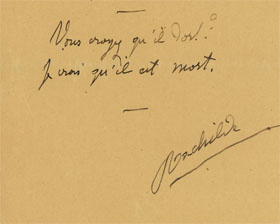 Vous croyez qu'il dort ?
Je crois qu'il est mort.
Rachilde